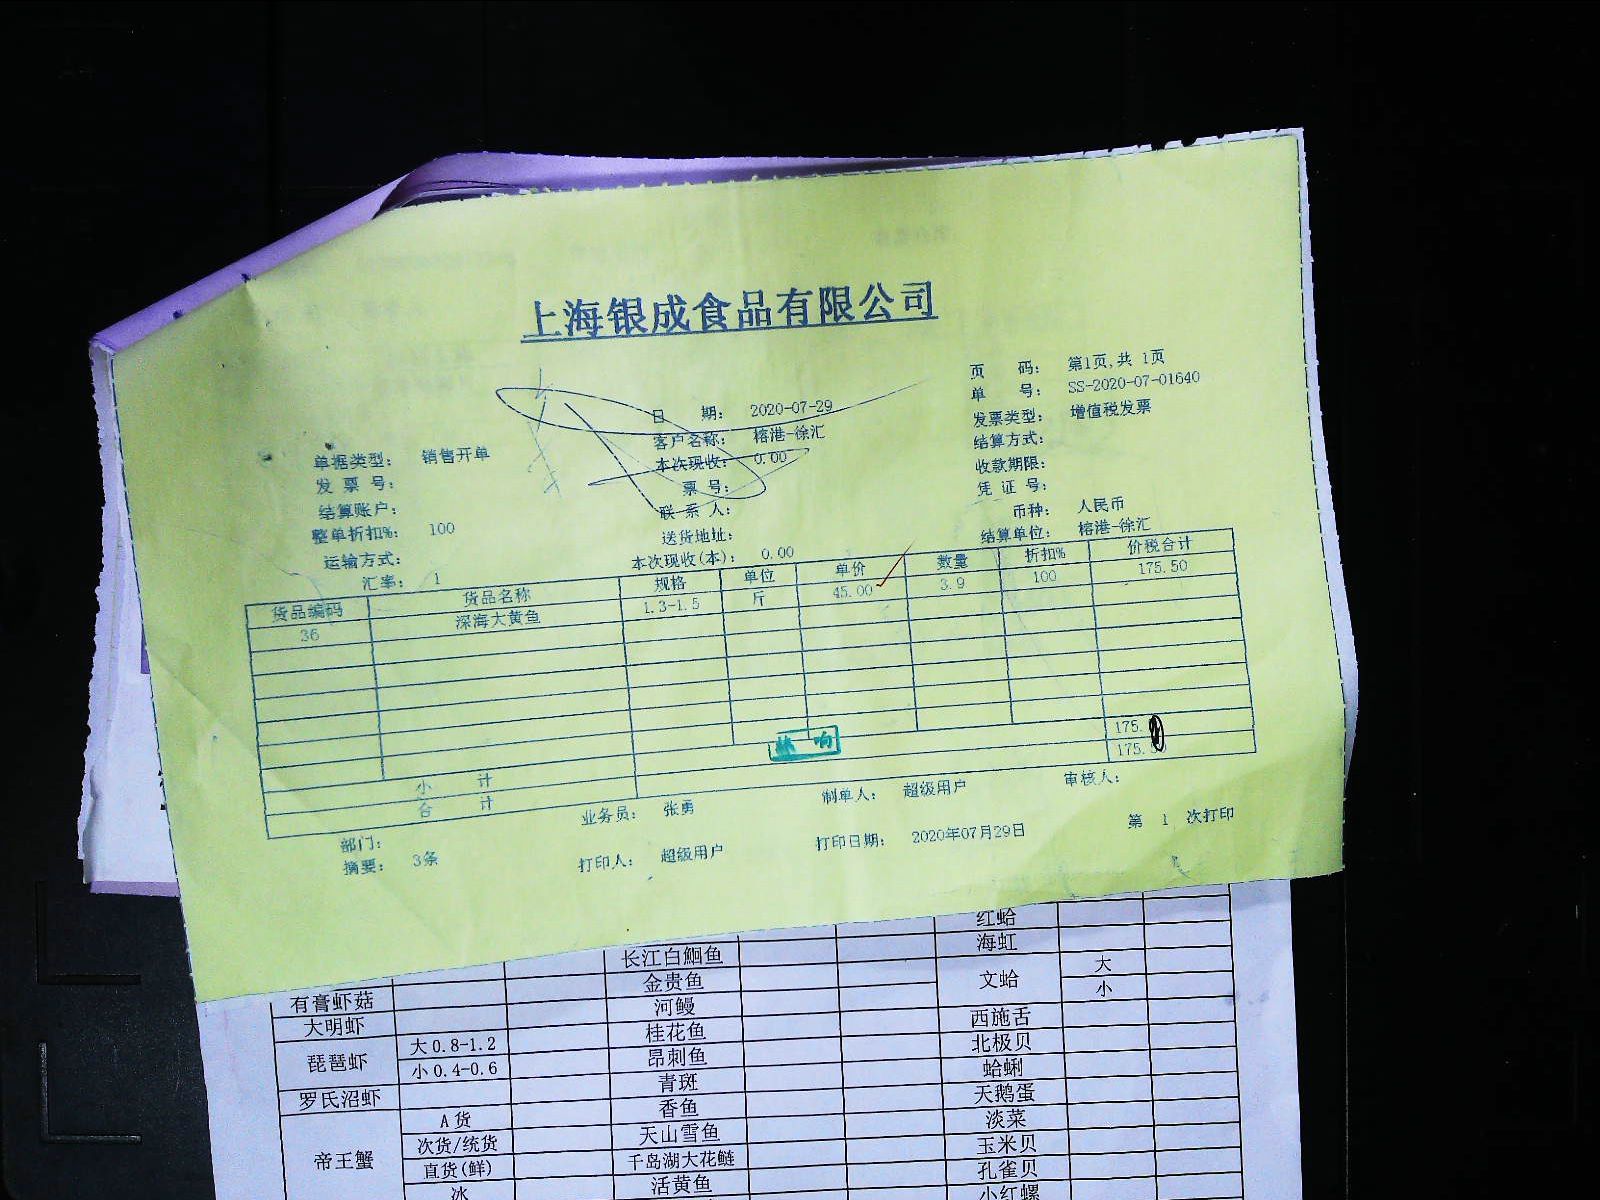 上海银成食品有限公司
页 码： 第1页,共 1页
单 号： SS-2020-07-01640
日 期： 2020-07-29
发票类型： 增值税发票
客户名称： 榕港-徐汇
结算方式：
单据类型： 销售开单
本次现收： 0.00
收款期限：
发 票 号：
票 号：
凭 证 号：
结算账户：
联 系 人：
币种： 人民币
整单折扣%： 100
送货地址：
结算单位： 榕港-徐汇
运输方式：
本次现收(本)： 0.00
汇率： 1
货品编码 货品名称 规格 单位 单价 数量 折扣% 价税合计
36 深海大黄鱼 1.3-1.5 斤 45.00 3.9 100 175.50
小 计 175.
合 计 175.
部门： 业务员： 张勇 制单人： 超级用户 审核人：
摘要： 3条 打印人： 超级用户 打印日期： 2020年07月29日 第 1 次打印
红蛤
长江白鮰鱼 海虹
金贵鱼 文蛤 大
有膏虾菇 河鳗 小
大明虾 桂花鱼 西施舌
琵琶虾 大0.8-1.2 昂刺鱼 北极贝
小0.4-0.6 青斑 蛤蜊
罗氏沼虾 香鱼 天鹅蛋
帝王蟹 A货 天山雪鱼 淡菜
次货/统货 千岛湖大花鲢 玉米贝
直货(鲜) 活黄鱼 孔雀贝
冰 小红螺